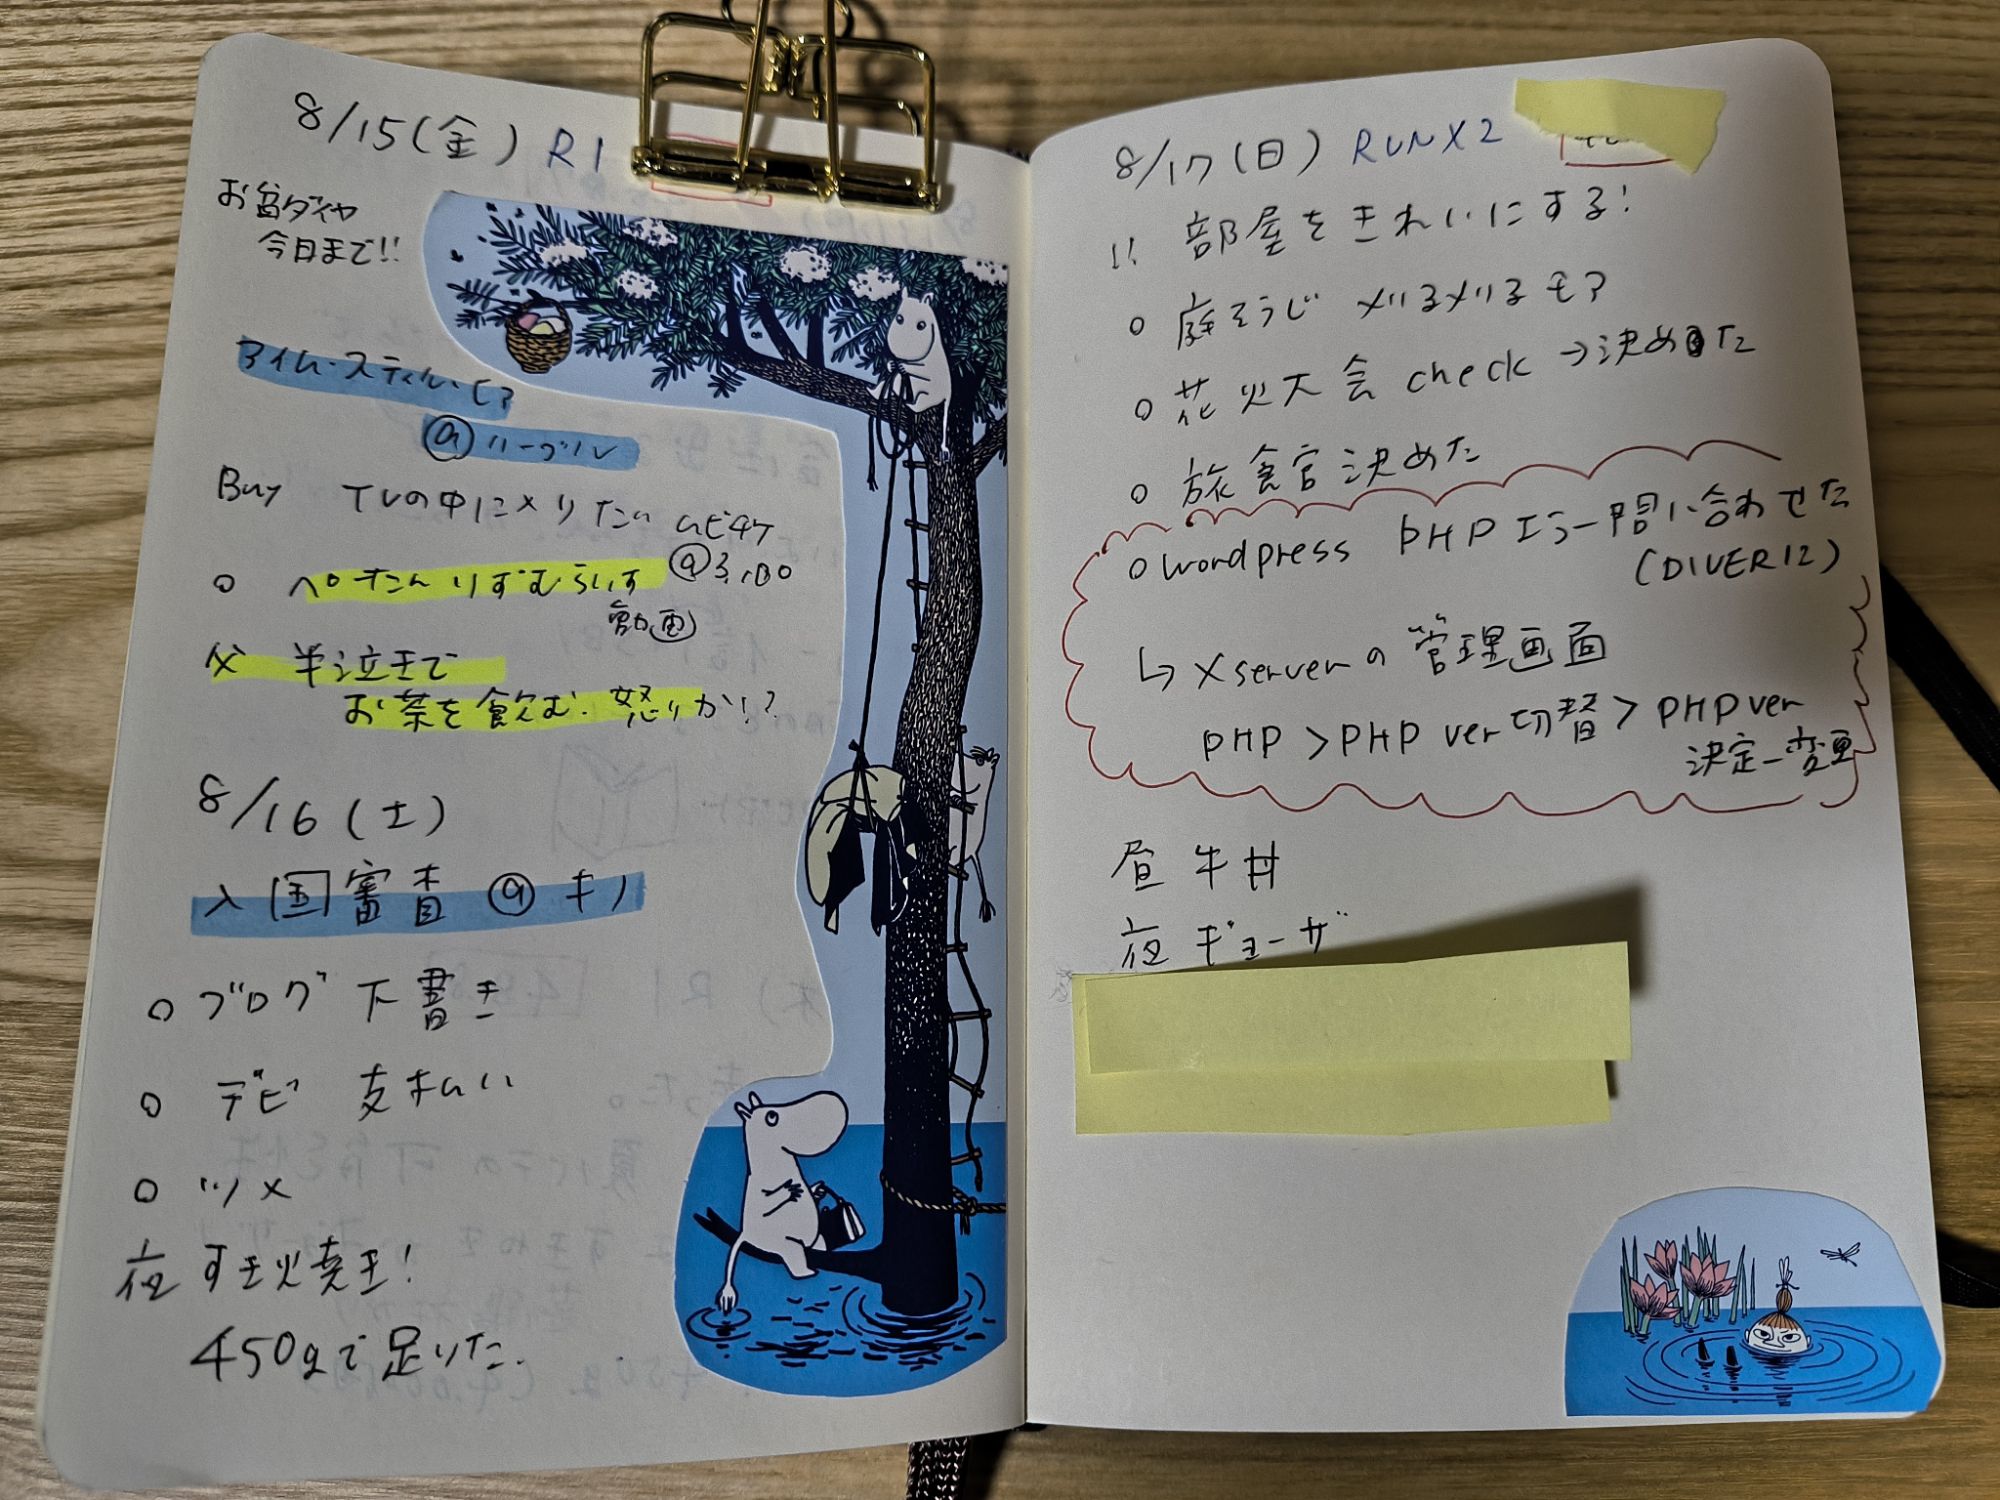 8/15(金) R1
お盆ダイヤ
今日まで!!
アイム・スティル・ヒア
@ルーブル
Buy TVの中に入りたい ムビチケ
@3,100
○ ぺたんりずむらいす
動画
父 半泣きで
お茶を飲む。怒りか!?
8/16(土)
入国審査 @キノ
○ ブログ 下書き
○ デビ 支払い
○ ツメ
夜 すき火焼き!
450gで足りた.
8/17(日) RUNX2
!! 部屋をきれいにする!
○ 庭そうじ メリるメリる モア
○ 花火大会 check → 決めた
○ 旅館 決めた
○ wordpress PHPエラー問い合わせた
(DIVER12)
↳ Xserverの管理画面
PHP > PHP ver切替 > PHP ver
決定-変更
昼 牛丼
夜 ギョーザ